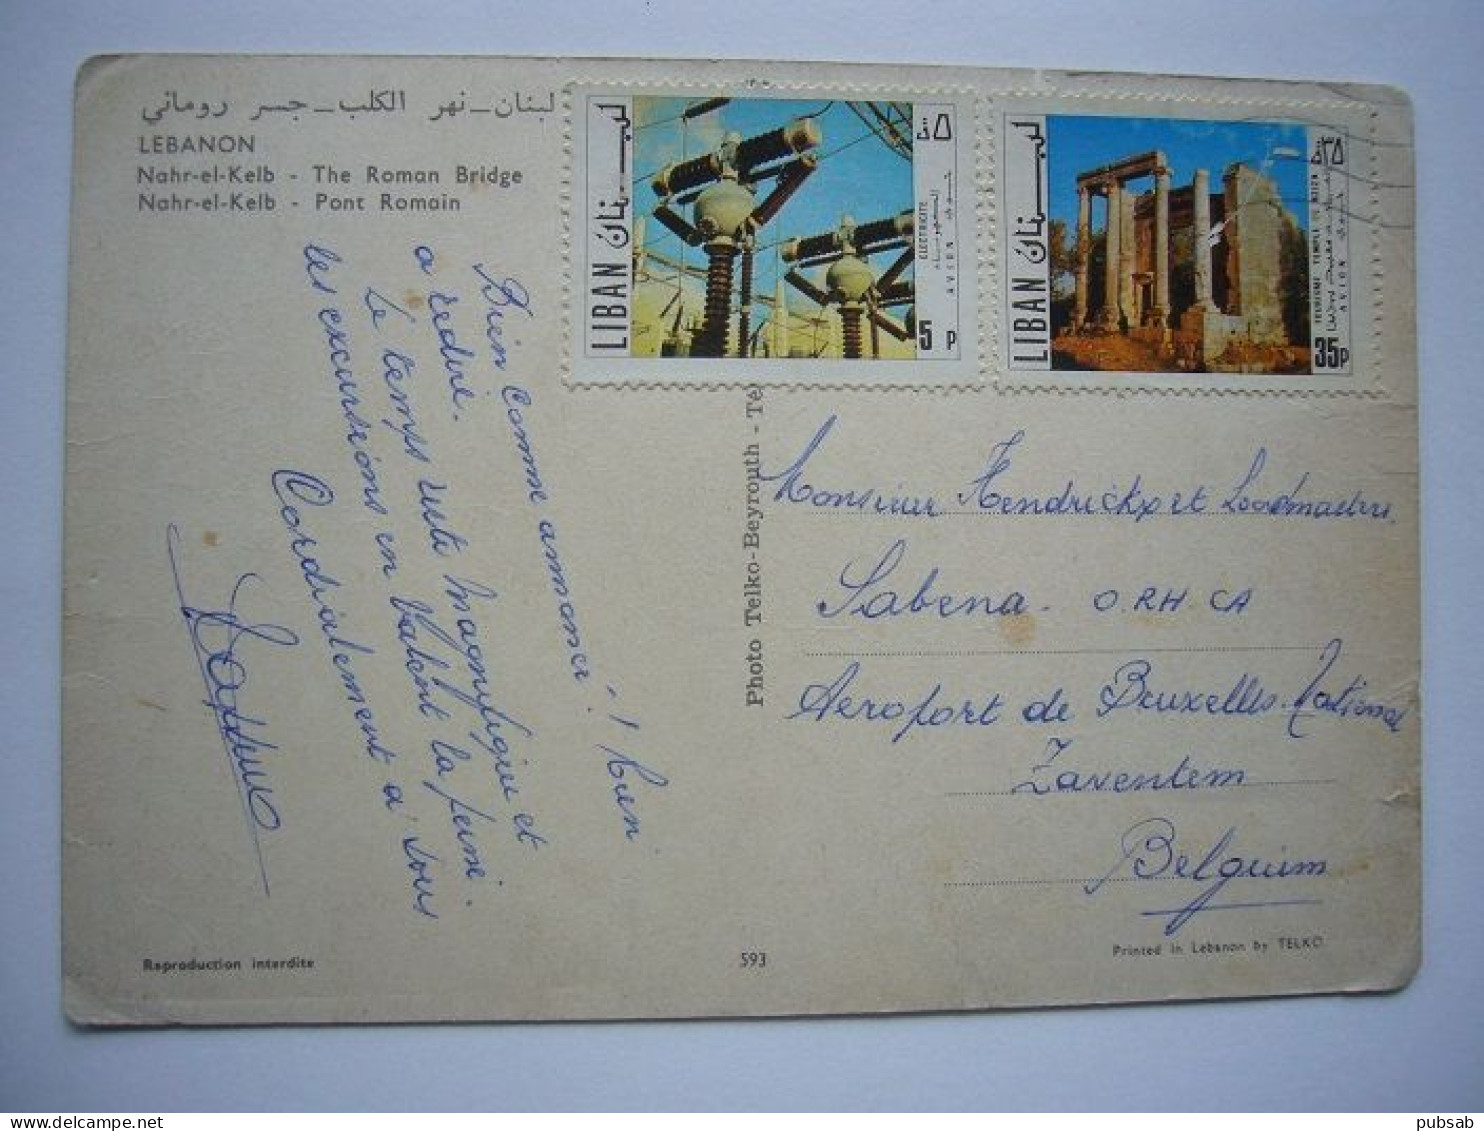 لبنان - نهر الكلب - جسر روماني
LEBANON
Nahr-el-Kelb - The Roman Bridge
Nahr-el-Kelb - Pont Romain
Bien comme annoncé ! rien
a redire.
Le temps reste magnifique et
les excursions en valent la peine.
Cordialement à tous
لبنان
LIBAN
٥ق
ELECTRICITE
AVION
5p
لبنان
LIBAN
٣٥ق
TOURISME TEMPLE
AVION
35p
Photo Telko-Beyrouth - Té
Monsieur Hendrickx et Loadmasters
Sabena - O.RH.CA
Aeroport de Bruxelles-National
Zaventem
Belguim
Reproduction interdite
593
Printed in Lebanon by TELKO
pubsab